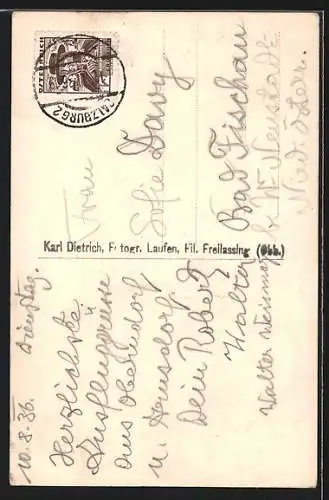 ÖSTERREICH
SALZBURG 2
Frau
Sofie Davy
Bad Fischau
b. W. Neustadt
Nied. Österr.
Karl Dietrich, Fotogr. Laufen, Fil. Freilassing (Obb.)
10.8.36. Dienstag.
Herzlichste
Ausfluggrüsse
aus Oberndorf
u. Arnsdorf
Dein Robert
Walter
Walter